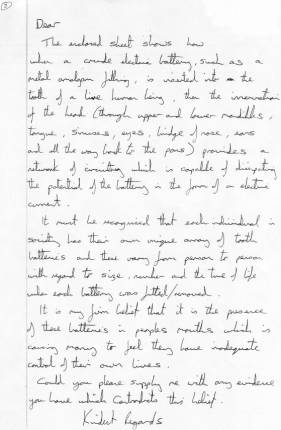 3
Dear
The enclosed sheet shows how
when a crude electric battery, such as a
metal amalgam filling, is inserted into the
tooth of a live human being, then the innervation
of the head (through upper and lower mandibles,
tongue, sinuses, eyes, bridge of nose, ears
and all the way back to the pons) provides a
network of circuitry which is capable of dissipating
the potential of the battery in the form of a electric
current.
It must be recognised that each individual in
society has their own unique array of tooth
batteries and these vary from person to person
with regard to size, number and the time of life
when each battery was fitted/removed.
It is my firm belief that it is the presence
of these batteries in peoples mouths which is
causing many to feel they have inadequate
control of their own lives.
Could you please supply me with any evidence
you have which contradicts this belief.
Kindest Regards